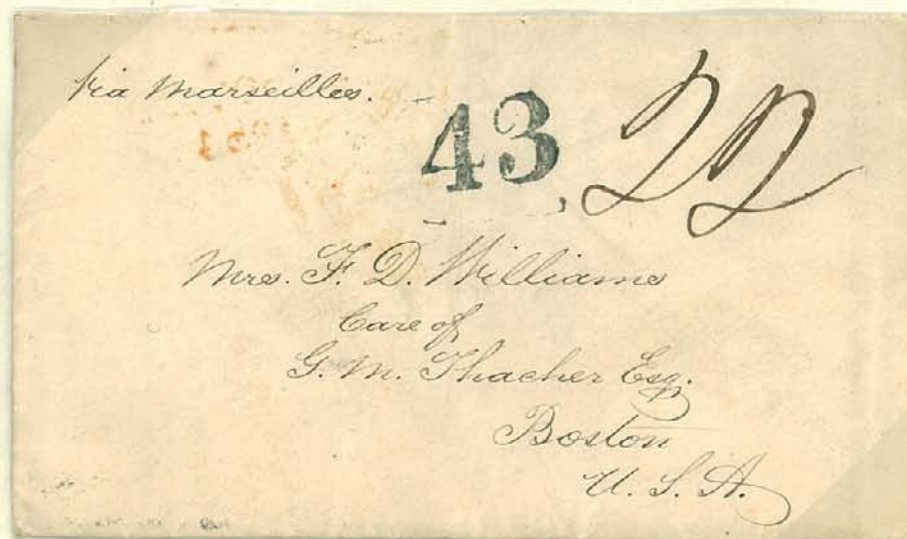 Via Marseilles.
43 22
Mrs. F. D. Williams
Care of
G. M. Thacher Esq.
Boston
U. S. A.